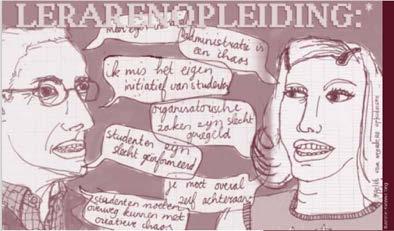 LERARENOPLEIDING:*
mijn eigen
administratie is
een chaos
ik mis het eigen
initiatief van studenten
organisatorische
zaken zijn slecht
geregeld
studenten zijn
slecht geïnformeerd
je moet overal
zelf achteraan
studenten moeten
overweg kunnen met
creatieve chaos